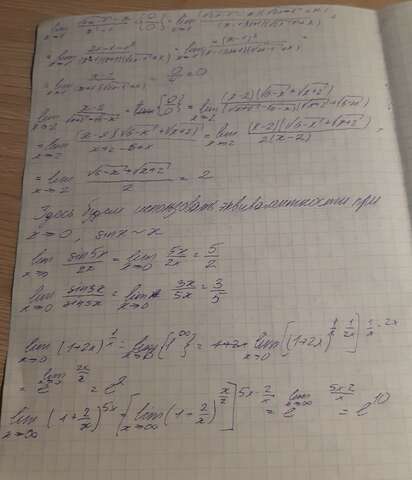 lim x→1 (√2x-1 - x)/(x²-1) = {0/0} = lim x→1
= lim x→1 (2x-1-x²)/((x-1)(x+1)(√2x-1+x)) = lim x→1 -(x-1)²/((x-1)(x+1)(√2x-1+x)) =
= lim x→1 = 0/4 = 0
lim x→2 (x-2)/(√x+2 - √6-x) = {0/0} = lim x→2 (x-2)(√6-x + √x+2)/((√x+2 - √6-x)(√x+2 + √6-x)) =
= lim x→2 (x-2)(√6-x + √x+2)/(x+2-6+x) = lim x→2 (x-2)(√6-x + √x+2)/(2(x-2)) =
= lim x→2 (√6-x + √x+2)/2 = 2
Здесь будем использовать эквивалентности при
x→0, sinx ~ x
lim x→0 sin5x/2x = lim x→0 5x/2x = 5/2
lim x→0 sin3x/sin5x = lim x→0 3x/5x = 3/5
lim x→0 (1+2x)^(1/x) = lim x→0 {1^∞} = lim x→0 [(1+2x)^(1/2x)]^(1/x · 2x)
= e^(lim x→0 2x/x) = e²
lim x→∞ (1+2/x)^5x = [lim x→∞ (1+2/x)^(x/2)]^(5x·2/x) = e^(lim x→∞ 5x·2/x) = e^10